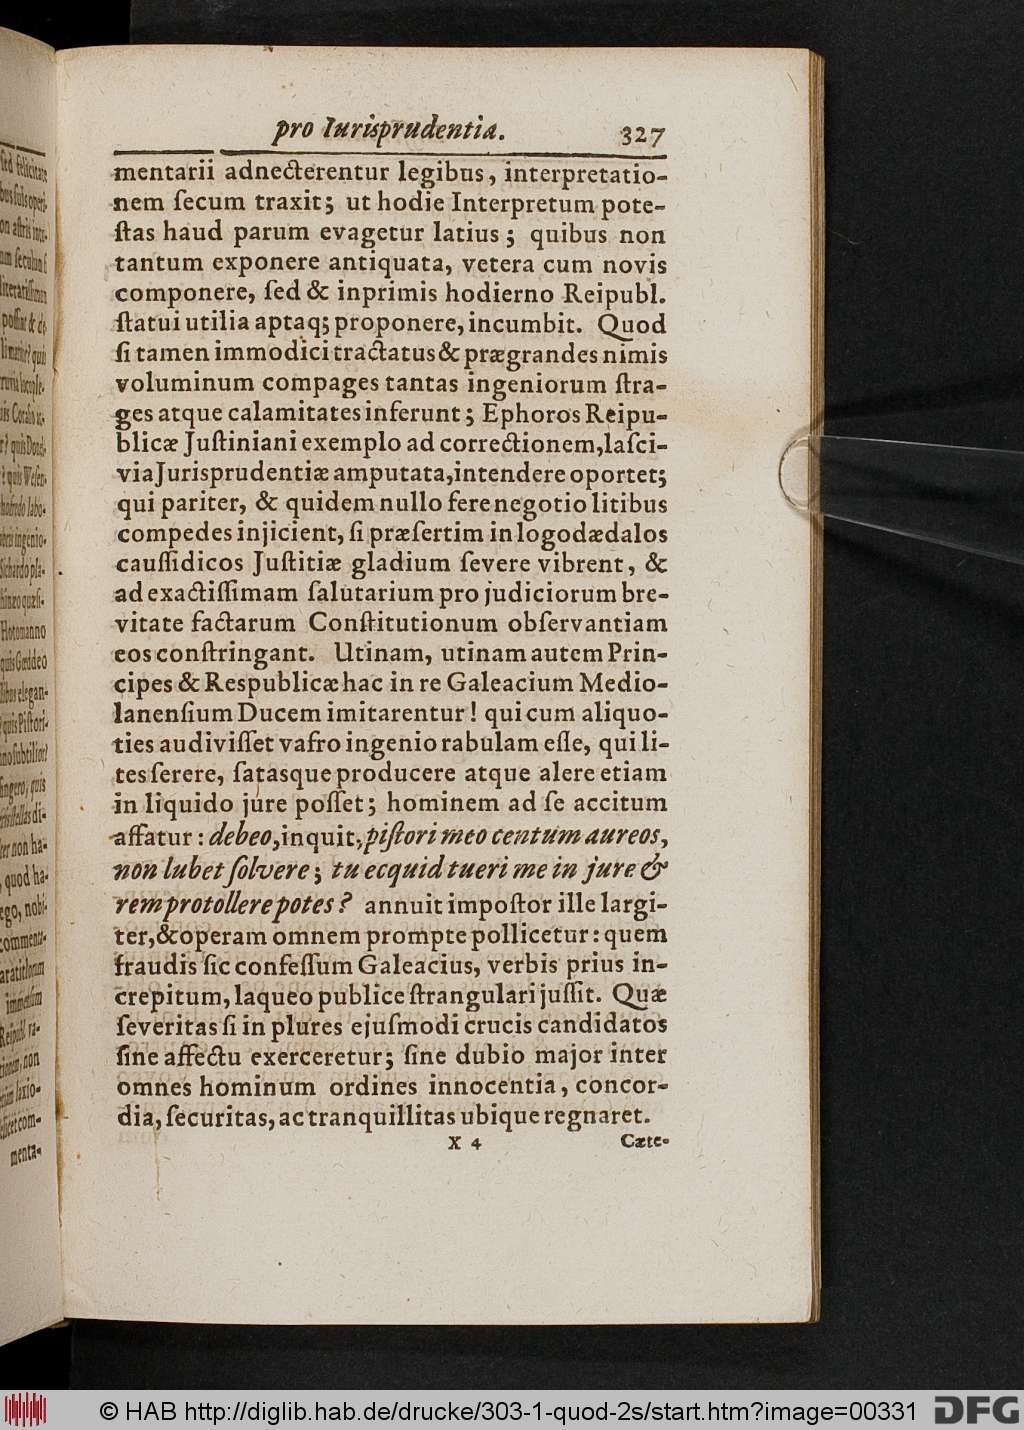 pro Iurisprudentia. 327
mentarii adnecterentur legibus, interpretatio-
nem ſecum traxit; ut hodie Interpretum pote-
ſtas haud parum evagetur latius; quibus non
tantum exponere antiquata, vetera cum novis
componere, ſed & inprimis hodierno Reipubl.
ſtatui utilia aptaq; proponere, incumbit. Quod
ſi tamen immodici tractatus & prægrandes nimis
voluminum compages tantas ingeniorum ſtra-
ges atque calamitates inferunt; Ephoros Reipu-
blicæ Juſtiniani exemplo ad correctionem, laſci-
via Jurisprudentiæ amputata, intendere oportet;
qui pariter, & quidem nullo fere negotio litibus
compedes injicient, ſi præſertim in logodædalos
cauſſidicos Juſtitiæ gladium ſevere vibrent, &
ad exactiſſimam ſalutarium pro judiciorum bre-
vitate factarum Conſtitutionum obſervantiam
eos conſtringant. Utinam, utinam autem Prin-
cipes & Respublicæ hac in re Galeacium Medio-
lanenſium Ducem imitarentur! qui cum aliquo-
ties audiviſſet vafro ingenio rabulam eſſe, qui li-
tes ſerere, ſatasque producere atque alere etiam
in liquido jure poſſet; hominem ad ſe accitum
affatur: debeo, inquit, piſtori meo centum aureos,
non lubet ſolvere; tu ecquid tueri me in jure &
rem protollere potes? annuit impoſtor ille largi-
ter, & operam omnem prompte pollicetur: quem
fraudis ſic confeſſum Galeacius, verbis prius in-
crepitum, laqueo publice ſtrangulari juſſit. Quæ
ſeveritas ſi in plures ejuſmodi crucis candidatos
ſine affectu exerceretur; ſine dubio major inter
omnes hominum ordines innocentia, concor-
dia, ſecuritas, ac tranquillitas ubique regnaret.
X 4 Cæte-
© HAB http://diglib.hab.de/drucke/303-1-quod-2s/start.htm?image=00331
DFG